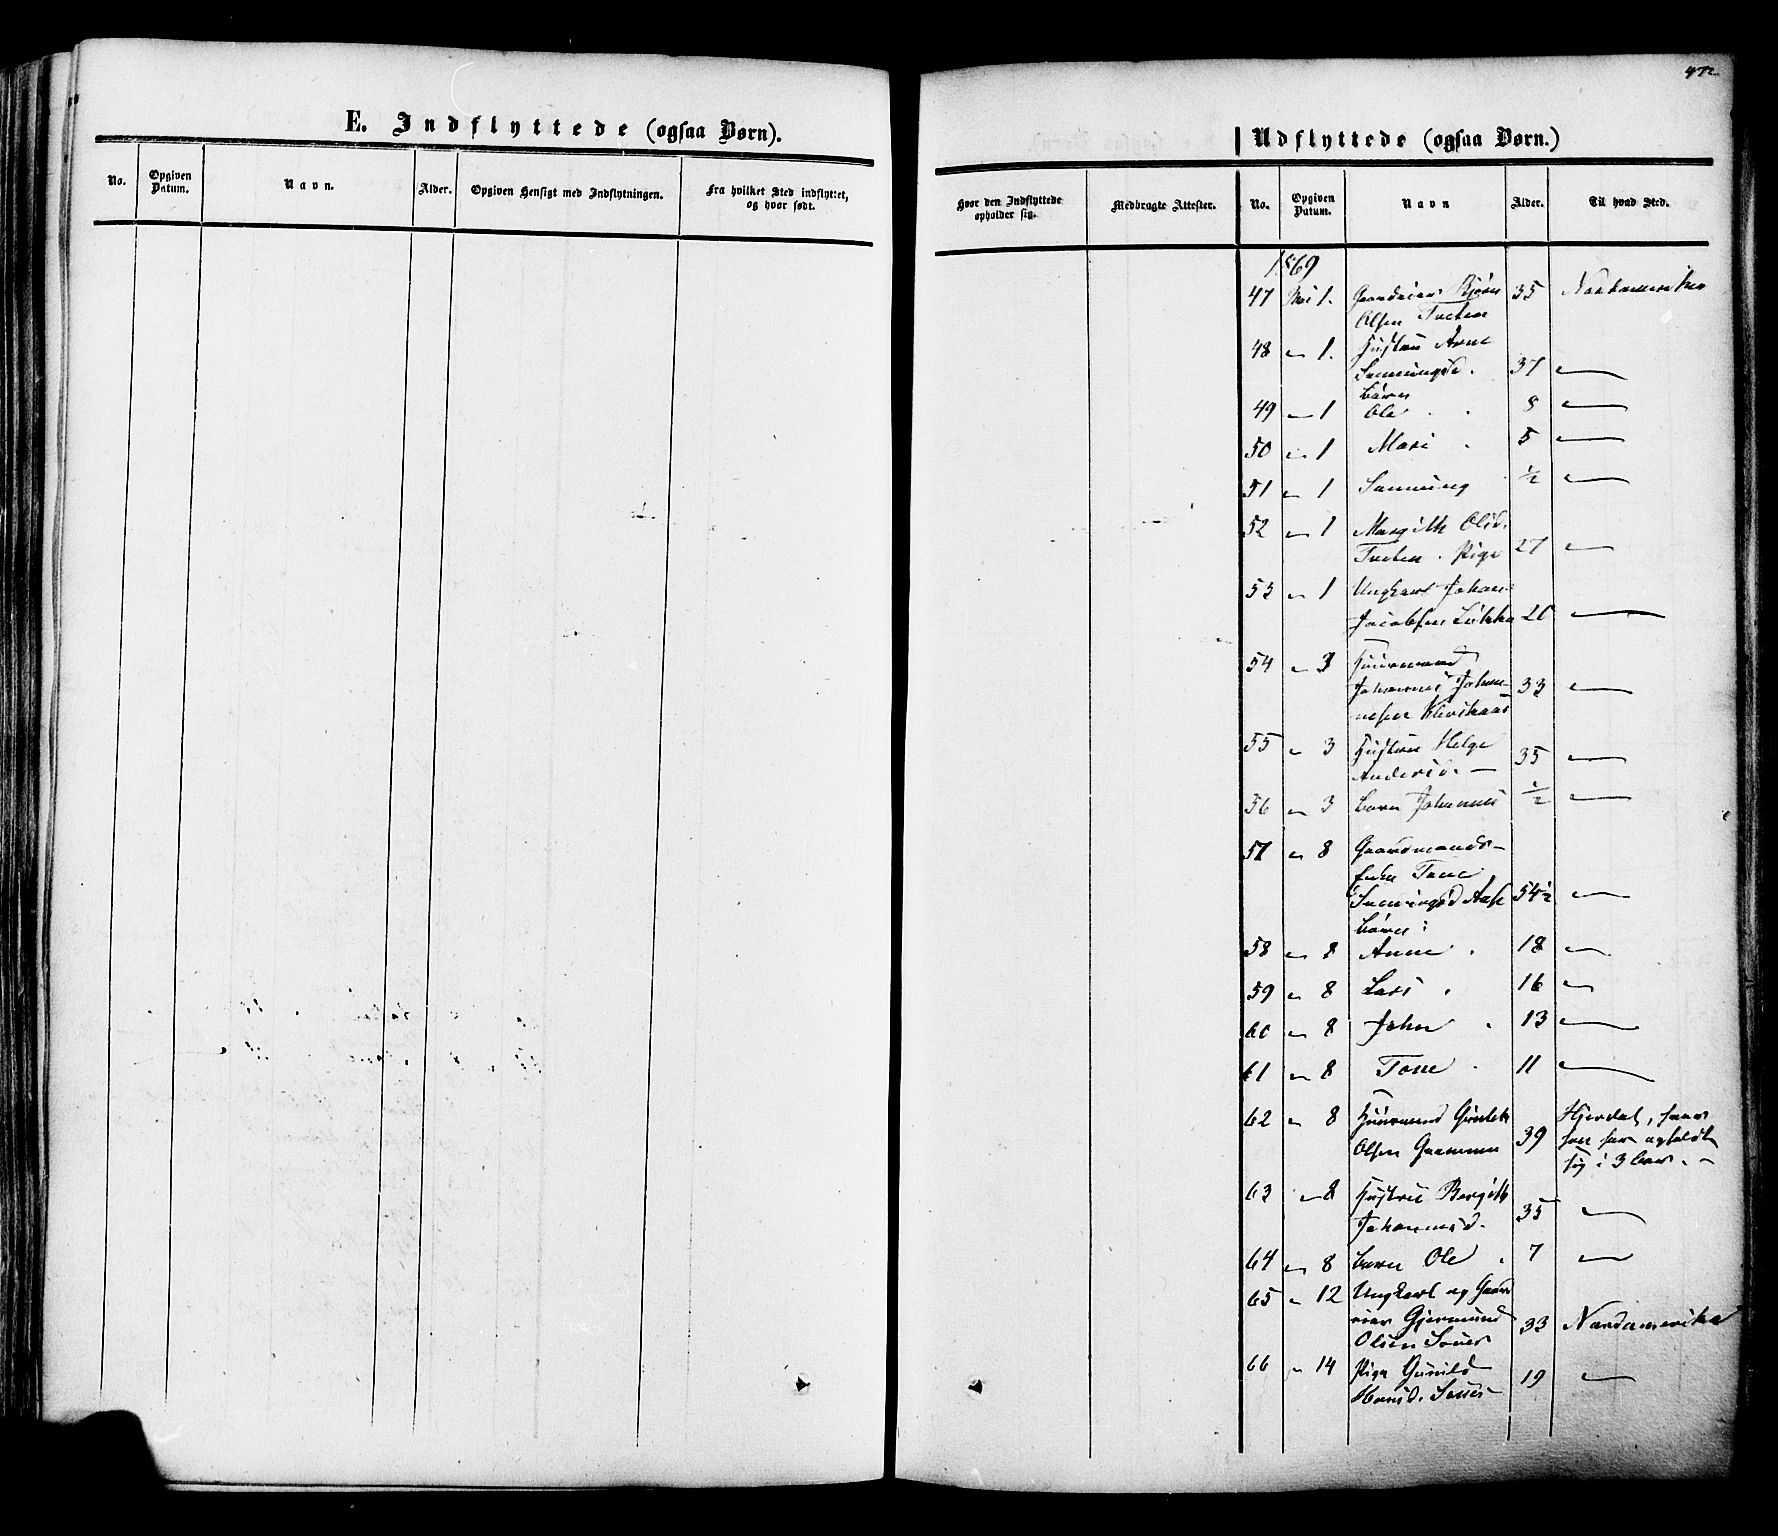 472
E. Indflyttede (ogsaa Børn).
No.
Opgiven Datum.
Navn.
Alder.
Opgiven Hensigt med Indflytningen.
Fra hvilket Sted indflyttet, og hvor født.
Udflyttede (ogsaa Børn.)
Hvor den Indflyttede opholder sig.
Medbragte Attester.
No.
Opgiven Datum.
Navn
Alder.
Til hvad Sted.
1869
47 Mai 1. Gaardeier Bjørn 35 Nordamerika
Olsen Tveten
48 " 1. Hustru Anne
37 "
Børn
49 " 1 Ole 8 "
50 " 1 Mari 5 "
51 " 1 ½ "
52 " 1 Margith Olsd.
Tveten. Pige 27 "
53 " 1 Ungkarl Johan
Jacobsen Løkka 20 "
54 " 3 Huusmand
Johannes Johan- 33 "
nesen
55 " 3 Hustru Helge
Andersd. 35 "
56 " 3 Barn Johannes ½ "
57 " 8 Gaardmands-
enke Tone
54½ "
Børn:
58 " 8 Anne 18 "
59 " 8 Lars 16 "
60 " 8 John 13 "
61 " 8 Tone 11 "
62 " 8 Huusmand Gunlek Hjerdal, hvor
Olsen 39 han har opholdt
sig i 3
63 " 8 Hustru Bergith
Johannesd. 35 "
64 " 8 Barn Ole 7 "
65 " 12 Ungkarl og Gaard
eier Gjermund 33 Nordamerika
Olsen
66 " 14 Pige Gunild
Hansd. 19 "